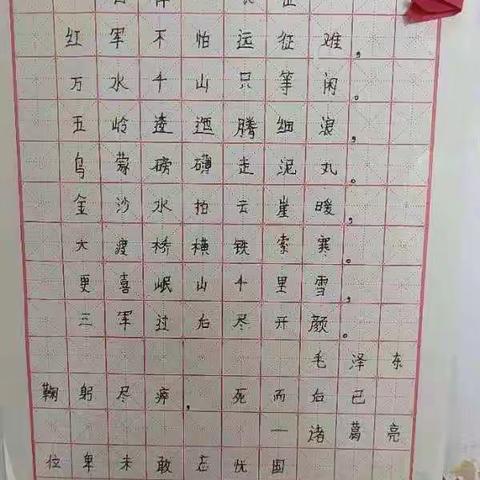 红军不怕远征难，
万水千山只等闲。
五岭逶迤腾细浪，
乌蒙磅礴走泥丸。
金沙水拍云崖暖，
大渡桥横铁索寒。
更喜岷山千里雪，
三军过后尽开颜。
毛泽东
鞠躬尽瘁，死而后已
一诸葛亮
位卑未敢忘忧国